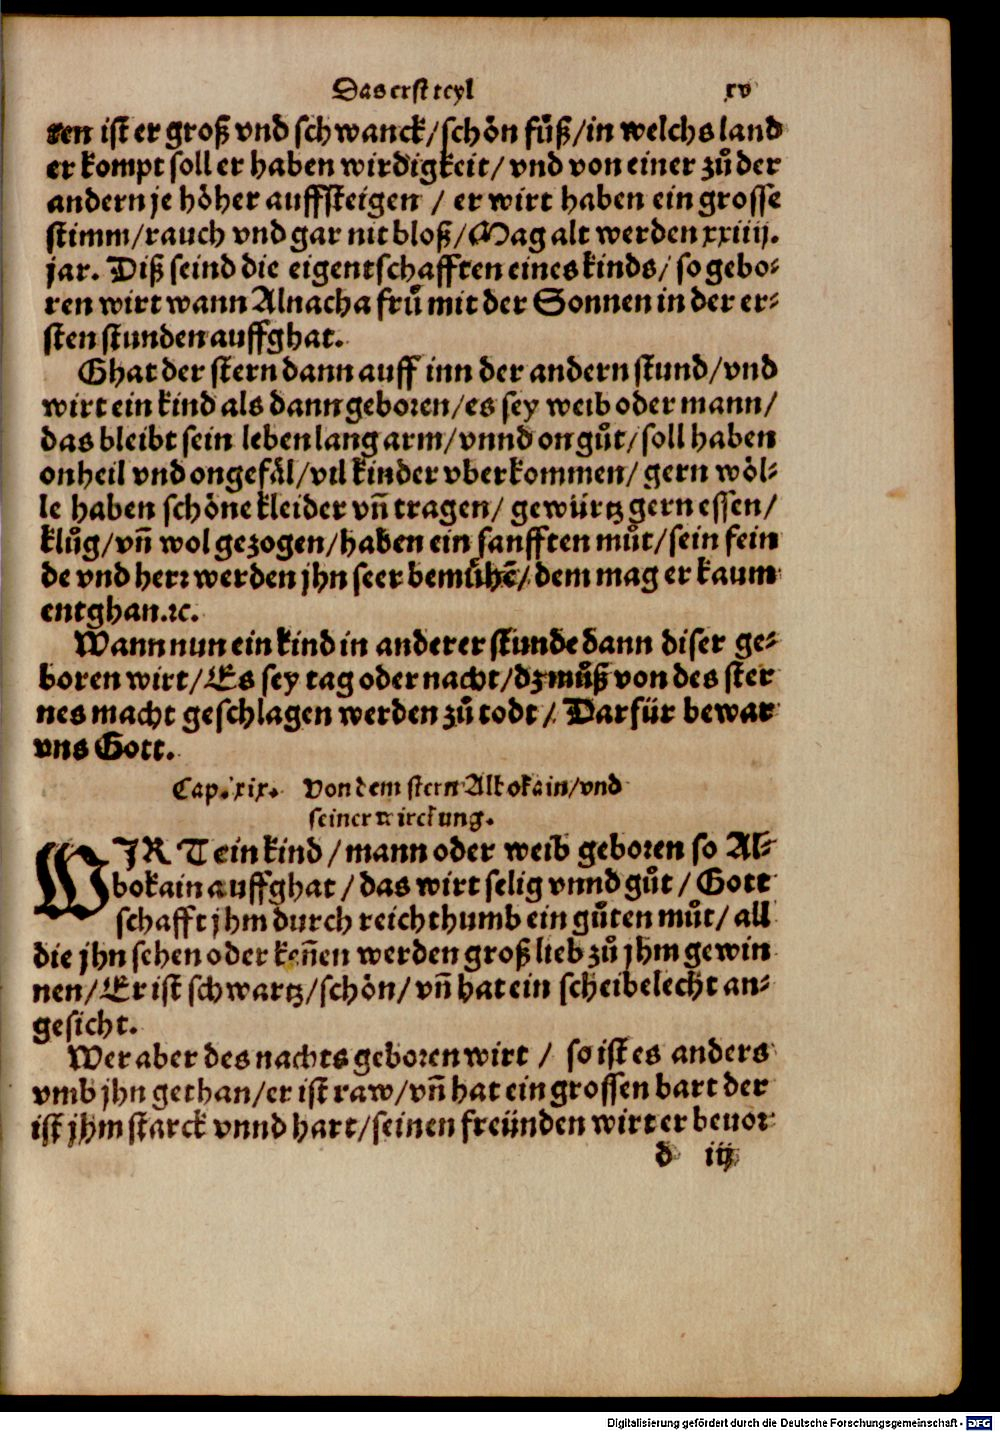 Das erst teyl xv
ren ist er groß vnd schwanck/schön fůß/in welchs land
er kompt soll er haben wirdigkeit/ vnd von einer zů der
andern je höher auffsteigen / er wirt haben ein grosse
stimm/rauch vnd gar nit bloß/Mag alt werden xxiiij.
jar. Diß seind die eigentschafften eines kinds/ so gebo⸗
ren wirt wann Alnacha frů mit der Sonnen in der er⸗
sten stunden auffghat.
Ghat der stern dann auff inn der andern stund/vnd
wirt ein kind als dann geboren/es sey weib oder mann/
das bleibt sein leben lang arm/vnnd on gůt/soll haben
onheil vnd ongefäl/vil kinder vberkommen/ gern wöl⸗
le haben schöne kleider vñ tragen/ gewürtz gern essen/
klůg/vñ wol gezogen/haben ein sanfften můt/sein fein
de vnd herr werden jhn seer bemůhẽ/dem mag er kaum
entghan.ꝛc.
Wann nun ein kind in anderer stunde dann diser ge⸗
boren wirt/Es sey tag oder nacht/dz můß von des ster
nes macht geschlagen werden zů todt/ Darfür bewar
vns Gott.
Cap. xix. Von dem stern Albokain/vnd
seiner wirckung.
WIRT ein kind/mann oder weib geboren so Al⸗
bokain auffghat/das wirt selig vnnd gůt/ Gott
schafft jhm durch reichthumb ein gůten můt/ all
die jhn sehen oder keñen werden groß lieb zů jhm gewin
nen/Er ist schwartz/schön/ vñ hat ein scheibelecht an⸗
gesicht.
Wer aber des nachts geboren wirt / so ist es anders
vmb jhn gethan/er ist raw/vñ hat ein grossen bart der
ist jhm starck vnnd hart/seinen freünden wirt er beuor
d iij
Digitalisierung gefördert durch die Deutsche Forschungsgemeinschaft - DFG